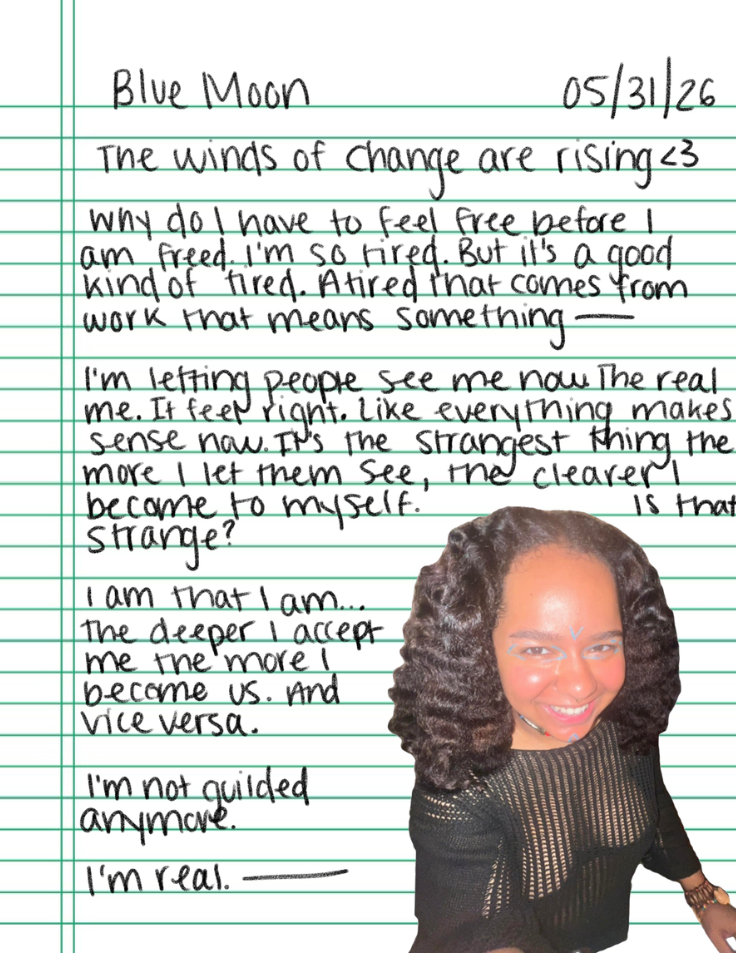 Blue Moon 05/31/26
The winds of change are rising <3
Why do I have to feel free before I
am freed. I'm so tired. But it's a good
kind of tired. A tired that comes from
work that means something —
I'm letting people see me now. The real
me. It feels right. Like everything makes
sense now. It's the strangest thing the
more I let them see, the clearer I
become to myself. Is that
strange?
I am that I am...
the deeper I accept
me the more I
become us. And
vice versa.
I'm not guilded
anymore.
I'm real. —